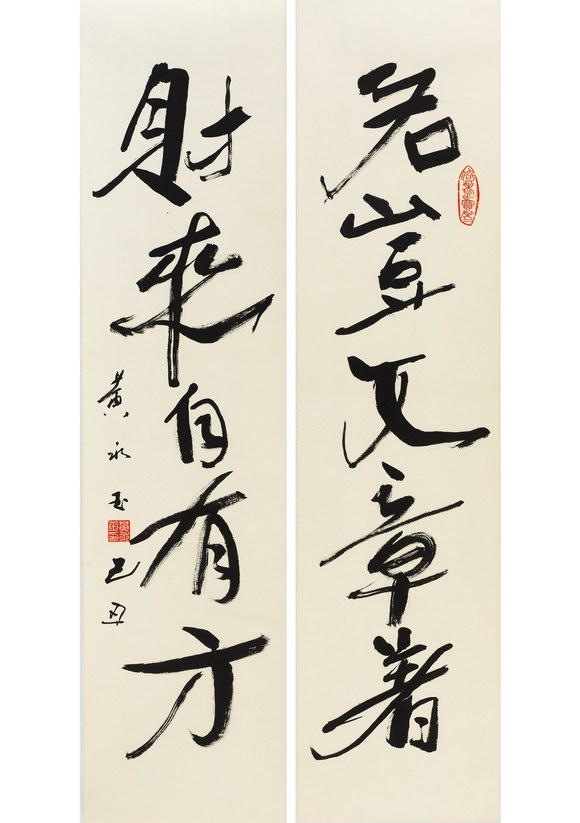 名豈文章著
財来自有方
黄永玉
己丑